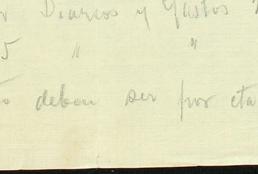 Diarios y Gastos
5 " "
deben ser por cta